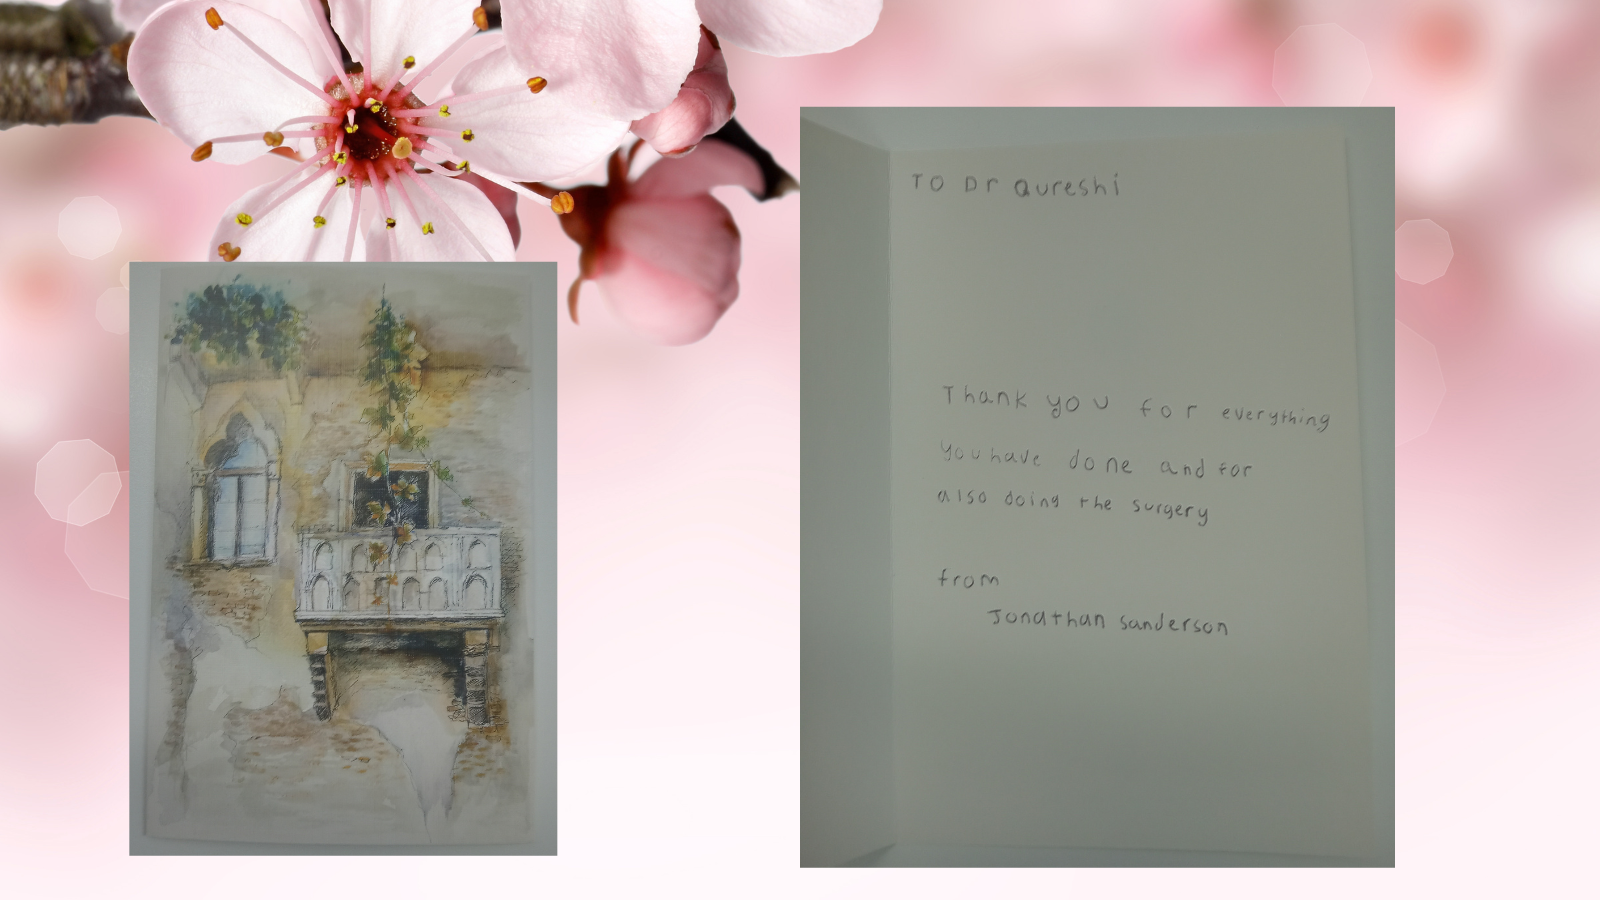 TO Dr Qureshi
Thank you for everything
you have done and for
also doing the surgery
from
Jonathan sanderson